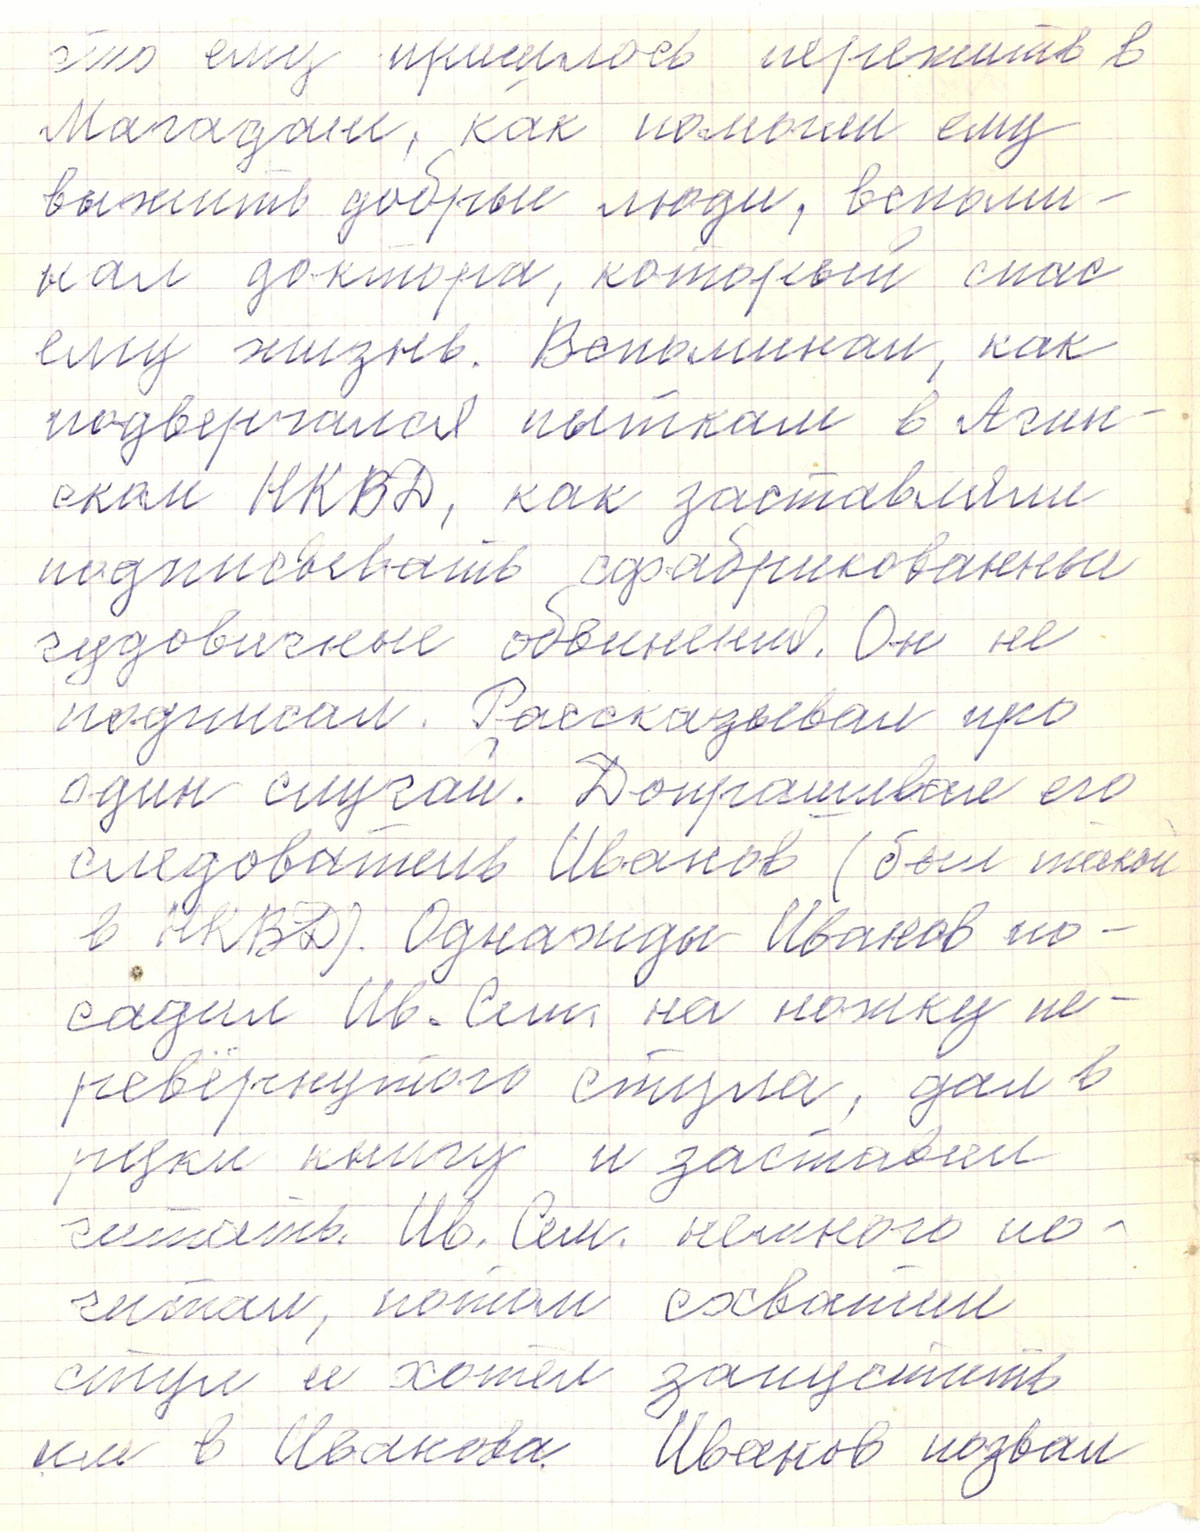 что ему пришлось пережить в
Магадане, как помогли ему
выжить добрые люди, вспоми-
нал доктора, который спас
ему жизнь. Вспоминал, как
подвергался пыткам в Агин-
ском НКВД, как заставляли
подписывать сфабрикованные
чудовичные обвинения. Он не
подписал. Рассказывал про
один случай. Допрашивал его
следователь Иванов (был такой
в НКВД). Однажды Иванов по-
садил Ив. Сем. на ножку пе-
ревёрнутого стула, дал в
руки книгу и заставил
читать. Ив. Сем. немного по-
читал, потом схватил
стул и хотел запустить
им в Иванова. Иванов позвал